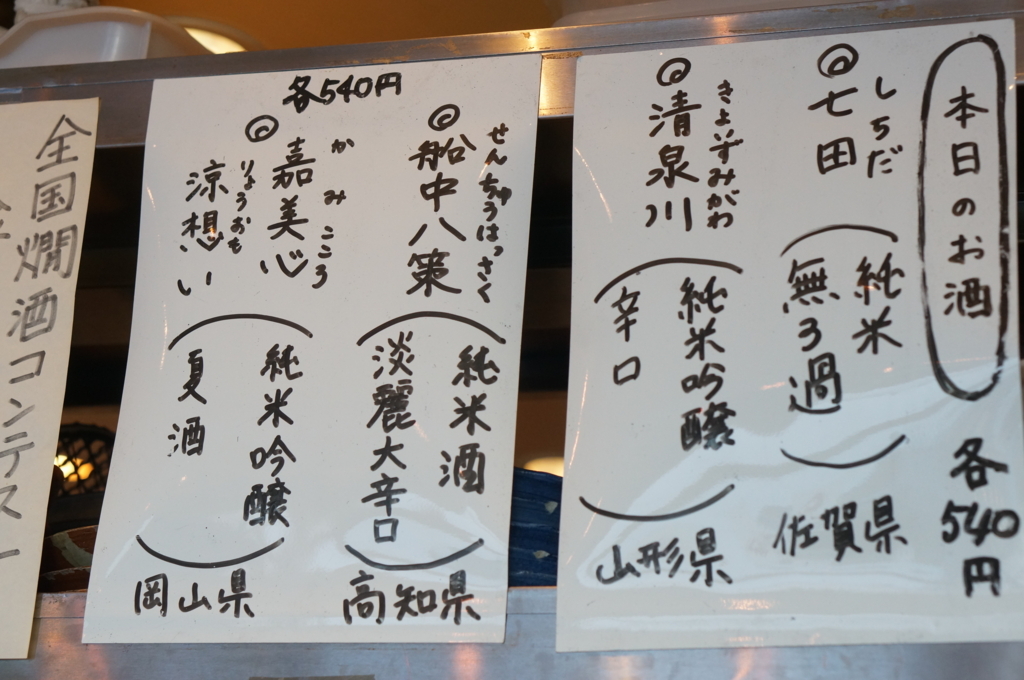 本日のお酒
各540円
しちだ
◎七田
純米
無ろ過
佐賀県
きよいずみがわ
◎清泉川
純米吟醸
辛口
山形県
各540円
せんちゅうはっさく
◎船中八策
純米酒
淡麗大辛口
高知県
かみこころ
◎嘉美心
りょうおもい
涼想い
純米吟醸
夏酒
岡山県
全国燗酒コンテスト